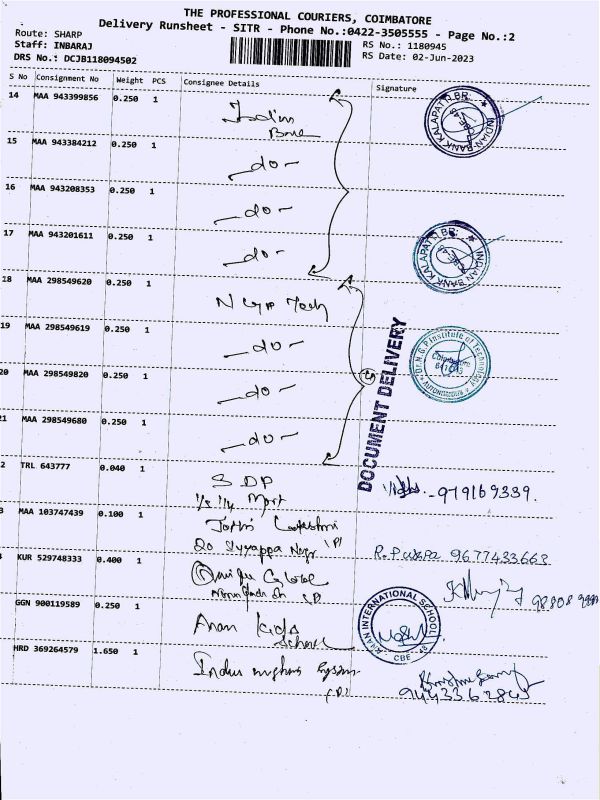 THE PROFESSIONAL COURIERS, COIMBATORE
Delivery Runsheet - SITR - Phone No.:0422-3505555 - Page No.:2
Route: SHARP
Staff: INBARAJ
DRS No.: DCJB118094502
RS No.: 1180945
RS Date: 02-Jun-2023
S No Consignment No Weight PCS Consignee Details Signature
14 MAA 943399856 0.250 1 Indian
Bank
INDIAN BANK KALAPATTI BR.
15 MAA 943384212 0.250 1 -do-
16 MAA 943208353 0.250 1 -do-
17 MAA 943201611 0.250 1 -do-
INDIAN BANK KALAPATTI BR.
18 MAA 298549620 0.250 1 NGP Tech
19 MAA 298549619 0.250 1 -do-
Dr. N.G.P. Institute of Technology
Coimbatore
AUTONOMOUS
20 MAA 298549820 0.250 1 -do-
DOCUMENT DELIVERY
21 MAA 298549680 0.250 1 -do-
2 TRL 643777 0.040 1 3 DP
979169339.
3 MAA 103747439 0.100 1 Jothi
20 Nagar
R.Puspa 9677433663
KUR 529748333 0.400 1
GGN 900119589 0.250 1 Anan Kids
School
ANAN INTERNATIONAL SCHOOL
CBE - 48
HRD 369264579 1.650 1 Indus
9443362843